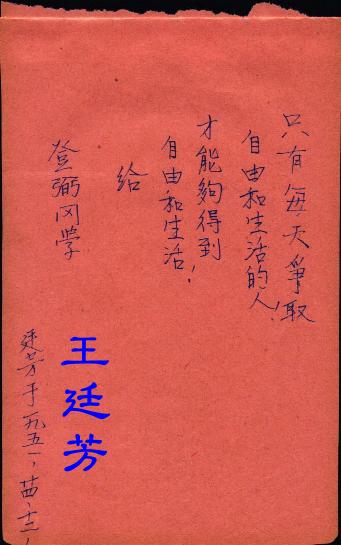 只有每天爭取
自由和生活的人,
才能夠得到
自由和生活!
给
登弼同學
王廷芳
廷芳于一九五一、